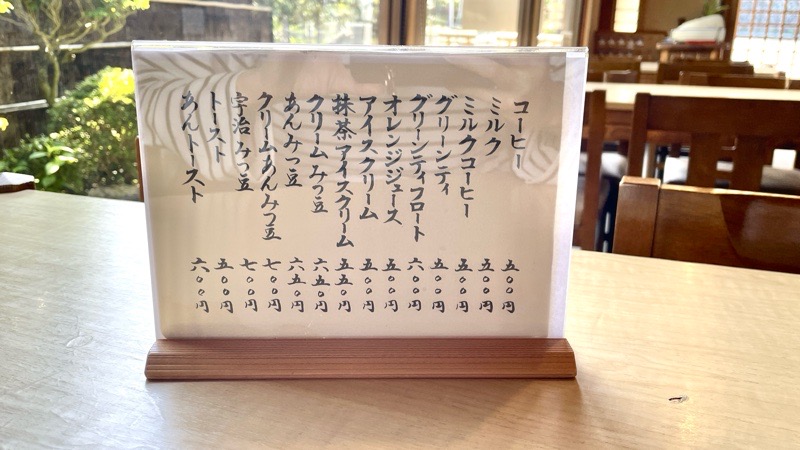 コーヒー 五〇〇円
ミルク 五〇〇円
ミルクコーヒー 五〇〇円
グリーンティ 五〇〇円
グリーンティフロート 六〇〇円
オレンジジュース 五〇〇円
アイスクリーム 五〇〇円
抹茶アイスクリーム 五五〇円
クリームみつ豆 六五〇円
あんみつ豆 六五〇円
クリームあんみつ豆 七〇〇円
宇治みつ豆 七〇〇円
トースト 五〇〇円
あんトースト 六〇〇円